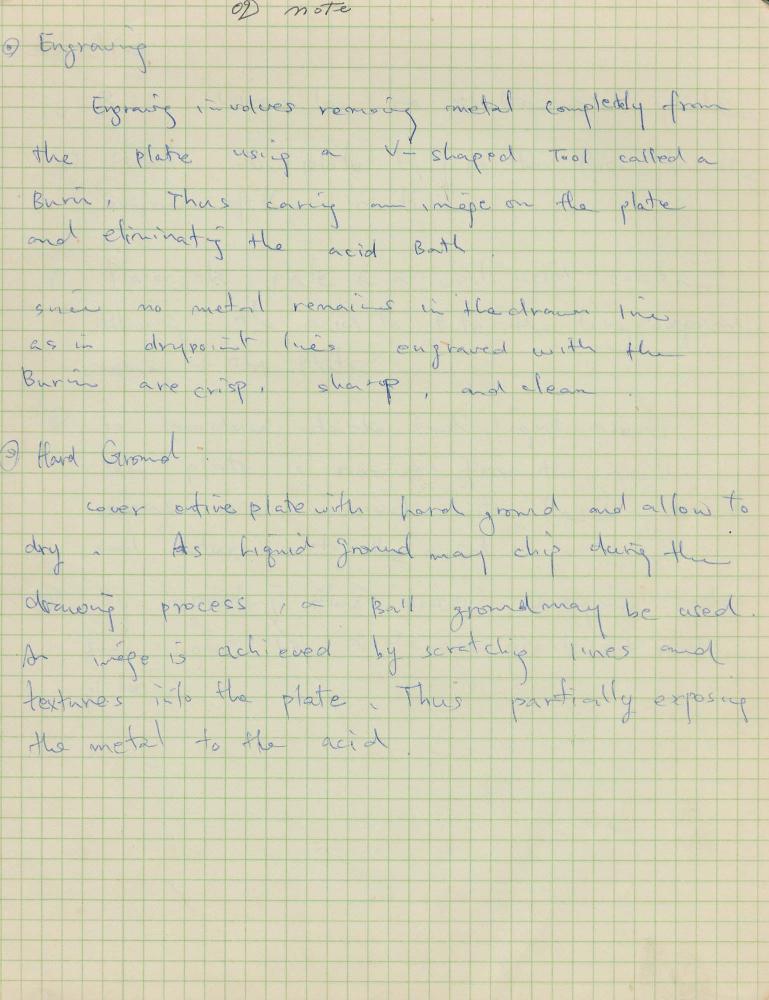 note
Engraving
Engraving involves removing metal completely from
the plate using a V-shaped Tool called a
Burin, Thus carving an image on the plate
and eliminating the acid Bath.
since no metal remains in the drawn line
as in drypoint lines engraved with the
Burin are crisp, sharp, and clean.
Hard Ground:
cover entire plate with hard ground and allow to
dry. As Liquid ground may chip during the
drawing process, a Ball ground may be used.
An image is achieved by scratching lines and
textures into the plate. Thus partially exposing
the metal to the acid.